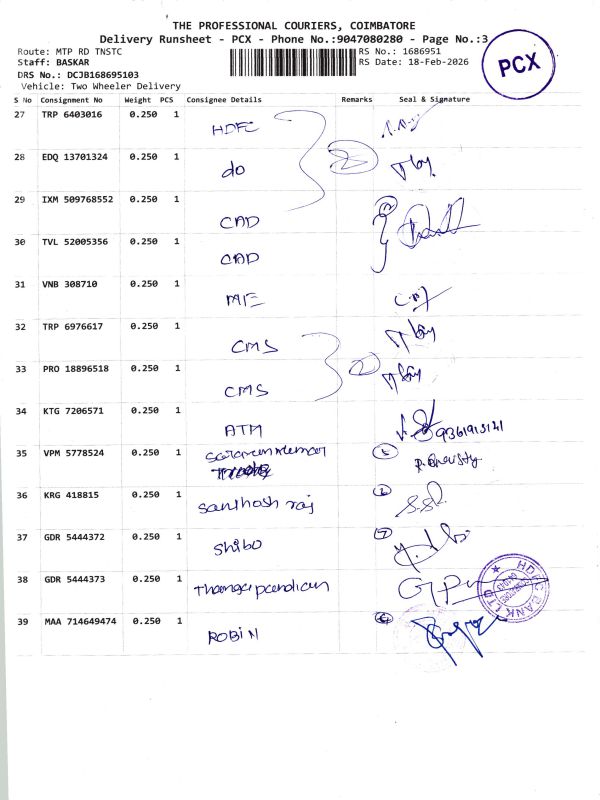 THE PROFESSIONAL COURIERS, COIMBATORE
Delivery Runsheet - PCX - Phone No.:9047080280 - Page No.:3
Route: MTP RD TNSTC
RS No.: 1686951
Staff: BASKAR
RS Date: 18-Feb-2026
DRS No.: DCJB168695103
Vehicle: Two Wheeler Delivery
PCX
S No Consignment No Weight PCS Consignee Details Remarks Seal & Signature
27 TRP 6403016 0.250 1 HDFC
28 EDQ 13701324 0.250 1 do
29 IXM 509768552 0.250 1 CAD
30 TVL 52005356 0.250 1 CAD
31 VNB 308710 0.250 1
32 TRP 6976617 0.250 1 CMS
33 PRO 18896518 0.250 1 CMS
34 KTG 7206571 0.250 1 ATM 9361913121
35 VPM 5778524 0.250 1
36 KRG 418815 0.250 1 Santhosh raj
37 GDR 5444372 0.250 1 Shibo 7
38 GDR 5444373 0.250 1 Thangapandian
39 MAA 714649474 0.250 1 ROBiN
HDFC BANK LTD